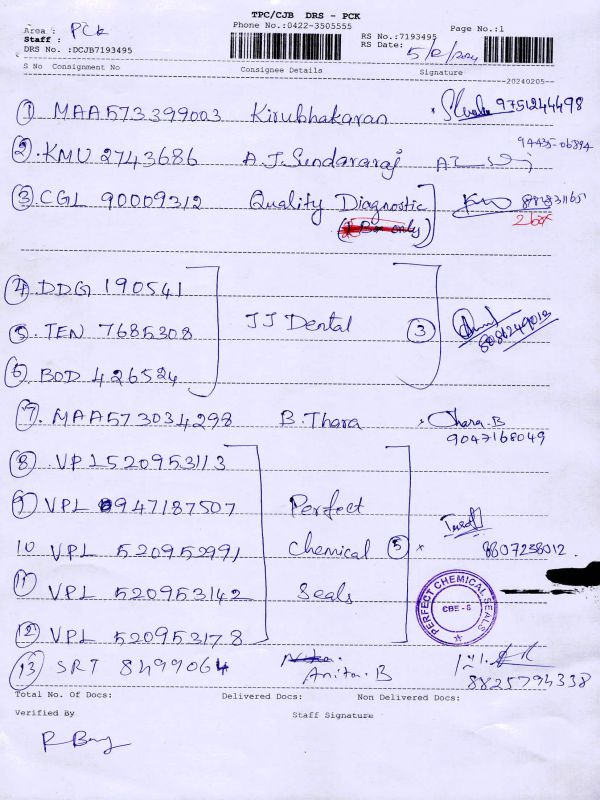 TPC/CJB DRS - PCK
Area : PCK
Phone No.:0422-3505555
Staff :
RS No.:7193495
Page No.:1
DRS No. :DCJB7193495
RS Date: 5/2/2024
S No Consignment No Consignee Details Signature
20240205
1 MAA573399003 Kirubhakaran 9751244498
2. KMU 2743686 A.J.Sundararaj 94435-06894
3. CGL 90009312 Quality Diagnostic
(1 Box only) 2 box
4 DDG 190541
5. TEN 7685308 JJ Dental 3
6 BOD 426524
7. MAA573034298 B.Thara Thara.B
9047168049
8 VPL520953113
9 VPL 0947187507 Perfect
10 VPL 520952991 Chemical 5 8807238012.
11 VPL 520953142 Seals
PERFECT CHEMICAL SEALS
CBE - 6
12 VPL 520953178
13 SRT 8499064 Anitha.B
8825794338
Total No. Of Docs: Delivered Docs: Non Delivered Docs:
Verified By Staff Signature